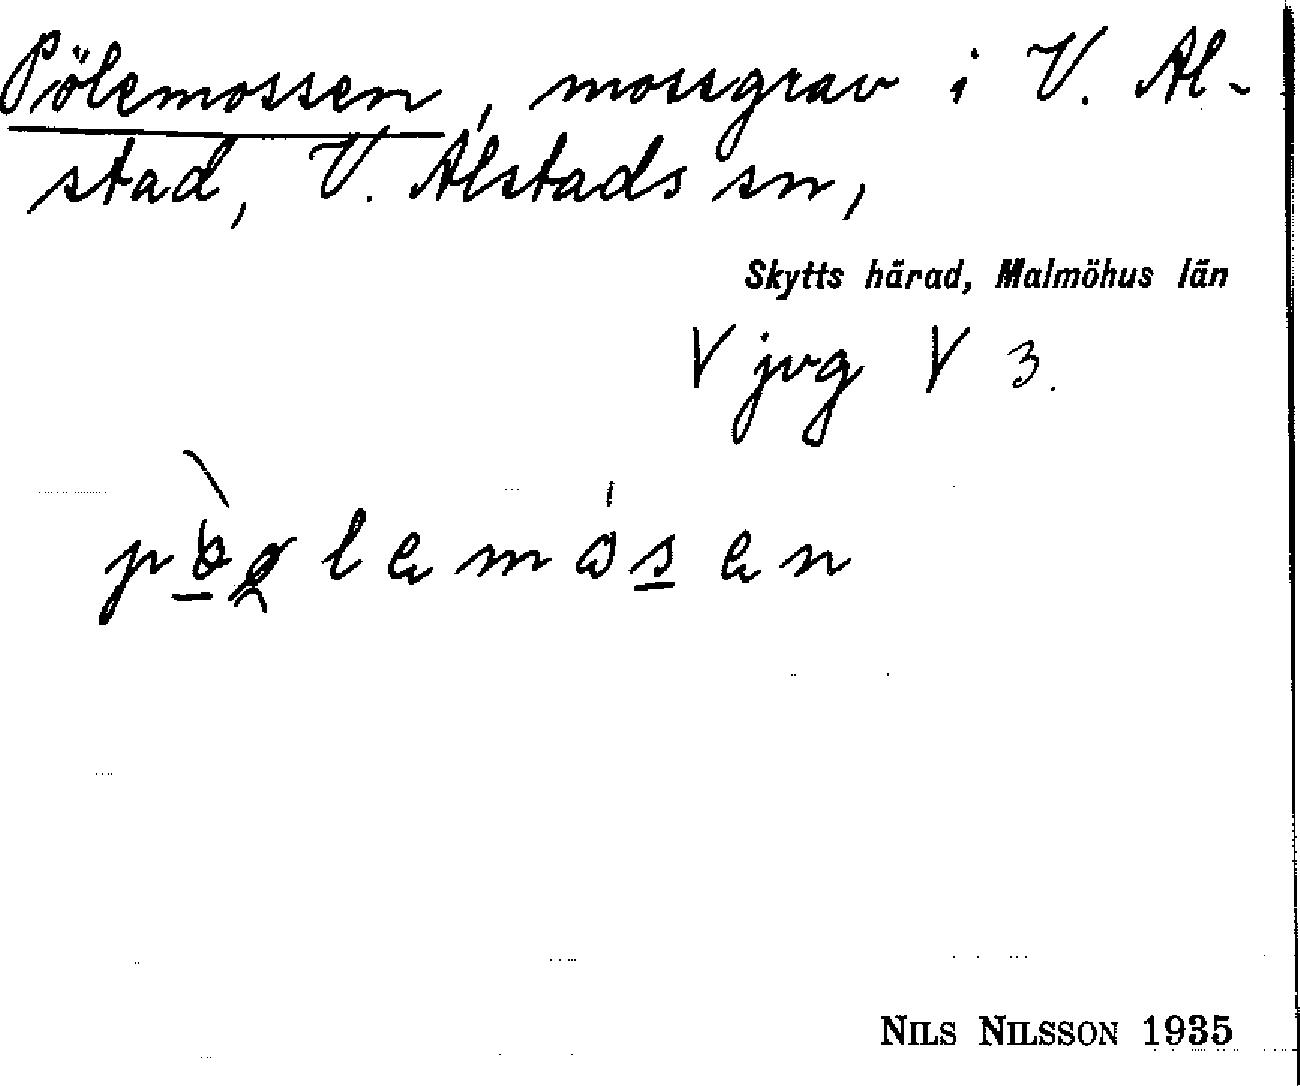 Pölemossen, mossgrav i V. Al-
stad, V. Alstads sn,
Skytts härad, Malmöhus län
V jvg V 3.
NILS NILSSON 1935